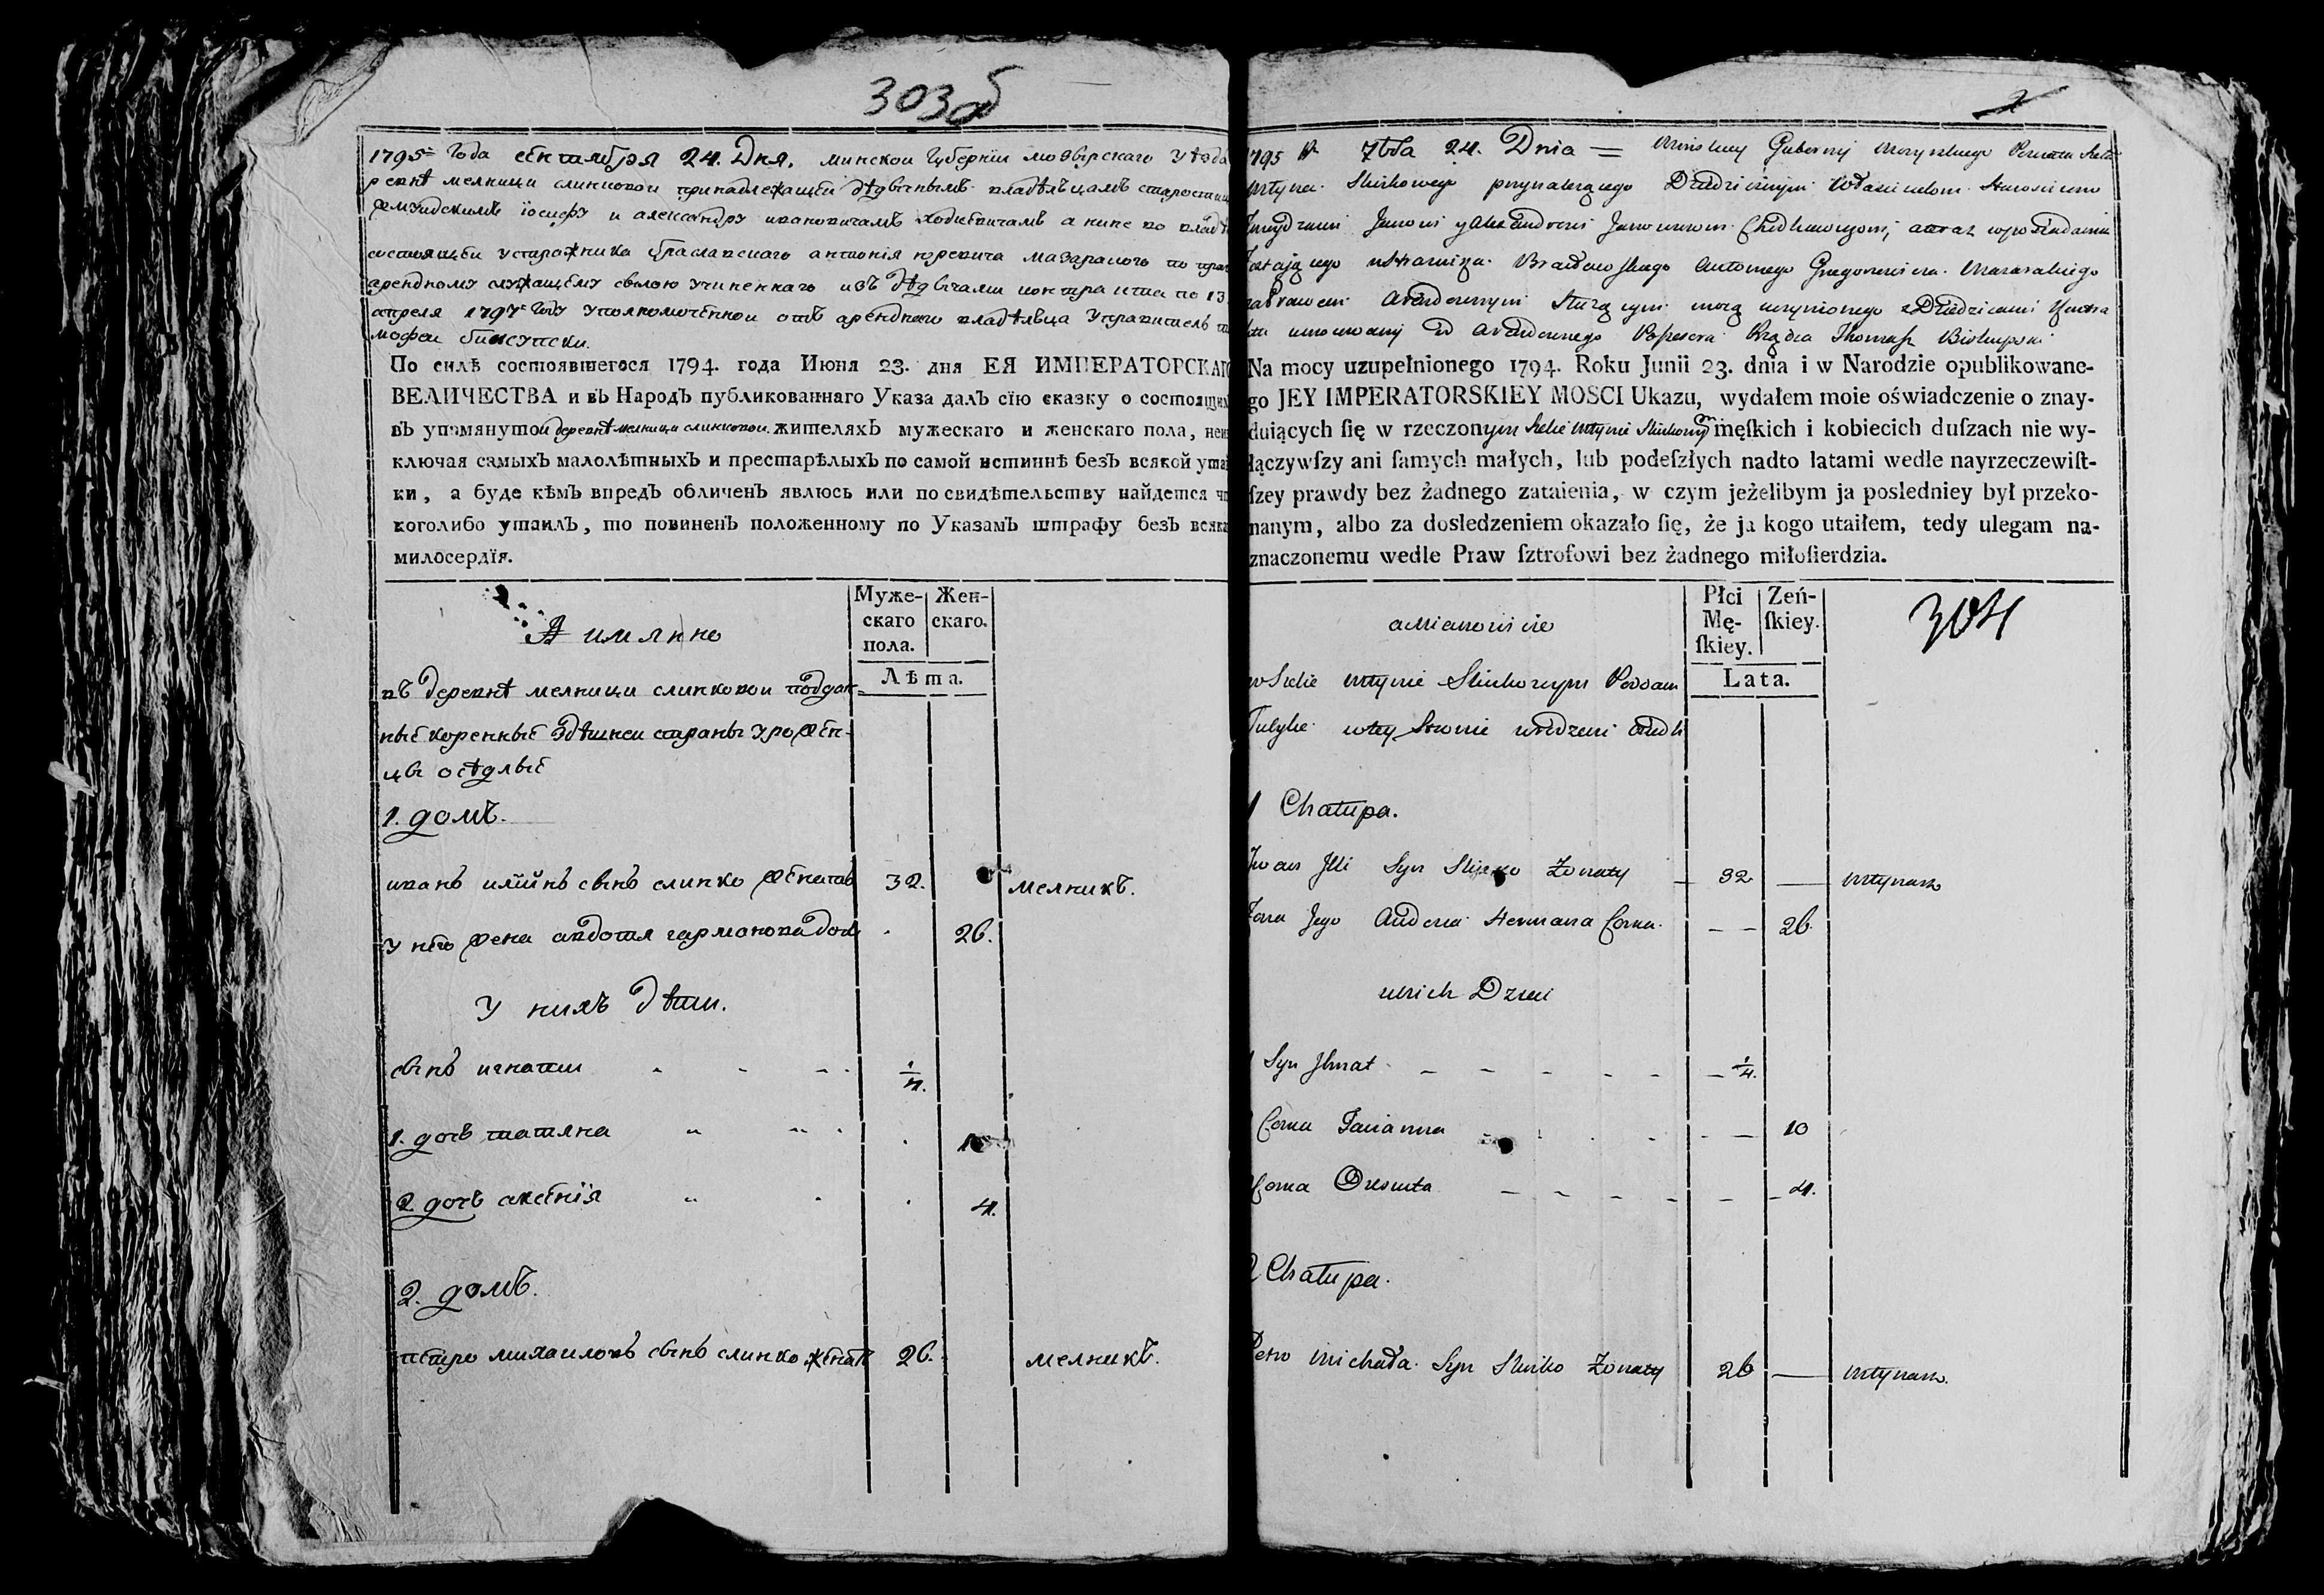 303об
1795 Года сентября 24. Дня. минской Губернии мозырскаго уезда
ревнѣ мелници слинковой принадлежащей дѣдычнымъ владѣльцамъ старостамъ
жмуидскимъ іосифу и александру ивановичамъ ходкевичамъ а ныне во владѣ
состоящей у стражника браславскаго антонія юревича мазараного по праву
арендному служащему силою учиненнаго изъ дѣдычами контракта по 13
апреля 1797 Году уполномоченной отъ арендного владѣльца управитель
мофеи бискупски.
По силѣ состоявшегося 1794. года Июня 23. дня ЕЯ ИМПЕРАТОРСКАГО
ВЕЛИЧЕСТВА и въ Народъ публикованнаго Указа далъ сїю сказку о состоящихъ
въ упомянутой деревнѣ мелници слинковой жителяхъ мужескаго и женскаго пола, неис
ключая самыхъ малолѣтныхъ и престарѣлыхъ по самой истиннѣ безъ всякой утай
ки, а буде кѣмъ впредъ обличенъ явлюсь или по свидѣтельству найдется что
коголибо утаилъ, то повиненъ положенному по Указамъ штрафу безъ всяка
милосердїя.
А имянно
Муже-
скаго
пола.
Жен-
скаго.
Лѣта.
въ деревнѣ мелници слинковой поддан-
ные коренные здѣшней страны урожен-
цы осѣдлые
1. домъ.
иванъ илїинъ сынъ слинко женатъ 32. мелникъ.
у него жена авдотя гармонова дочь 26.
у нихъ дѣти.
сынъ игнати 1/4.
1. дочь татяна 10
2 дочь аксенїя 4.
2. домъ.
петро михаиловъ сынъ слинко женатъ 26. мелникъ.
2
1795 R 7bra 24. Dnia = Minskiey Gubernij Mozyrskiego Powiatu Sieła
Młyna Slinkowego przynalezącego Dziedzicznym Włascicielom Staroscicom
Zmuydzkim Jozefowi y Alexandrowi Janowiczom Chodkiewiczom, a teraz w posiadaniu
Zostającego u Straznika Bracławskiego Antoniego Gregorewicza Mazarakiego
za Prawem Arendownym słuzącym mocą uczynionego z Dziedzicami Kontra
ktu umocowany od Arendownego Possesora Rządca Thomasz Biskupski
Na mocy uzupełnionego 1794. Roku Junii 23. dnia i w Narodzie opublikowane-
go JEY IMPERATORSKIEY MOSCI Ukazu, wydałem moie oświadczenie o znay-
duiących ſię w rzeczonym Siele Młynie Slinkowym męſkich i kobiecich duſzach nie wy-
łączywſzy ani ſamych małych, lub podeſzłych nadto latami wedle nayrzeczewiſt-
ſzey prawdy bez żadnego zataienia, w czym jeżelibym ja posledniey był przeko-
nanym, albo za dosledzeniem okazało ſię, że ja kogo utaiłem, tedy ulegam na-
znaczonemu wedle Praw ſztrofowi bez żadnego miłoſierdzia.
a Mianowicie
Płci
Mę-
ſkiey.
Zeń-
ſkiey.
Lata.
304
w Siele Młynie Slinkowym Poddani
Tuteysze w tey Stronie urodzeni osiedli
1 Chałupa.
Jwan Jlli Syn Slinko Zonaty 32 Młynarz
Zona Jego Audocia Hermana Corka 26.
u nich Dzieci
Syn Jhnat 1/4.
Corka Tacianna 10
Corka Oxiuta 4.
2 Chałupa.
Petro Michała Syn Slinko Zonaty 26 Młynarz.